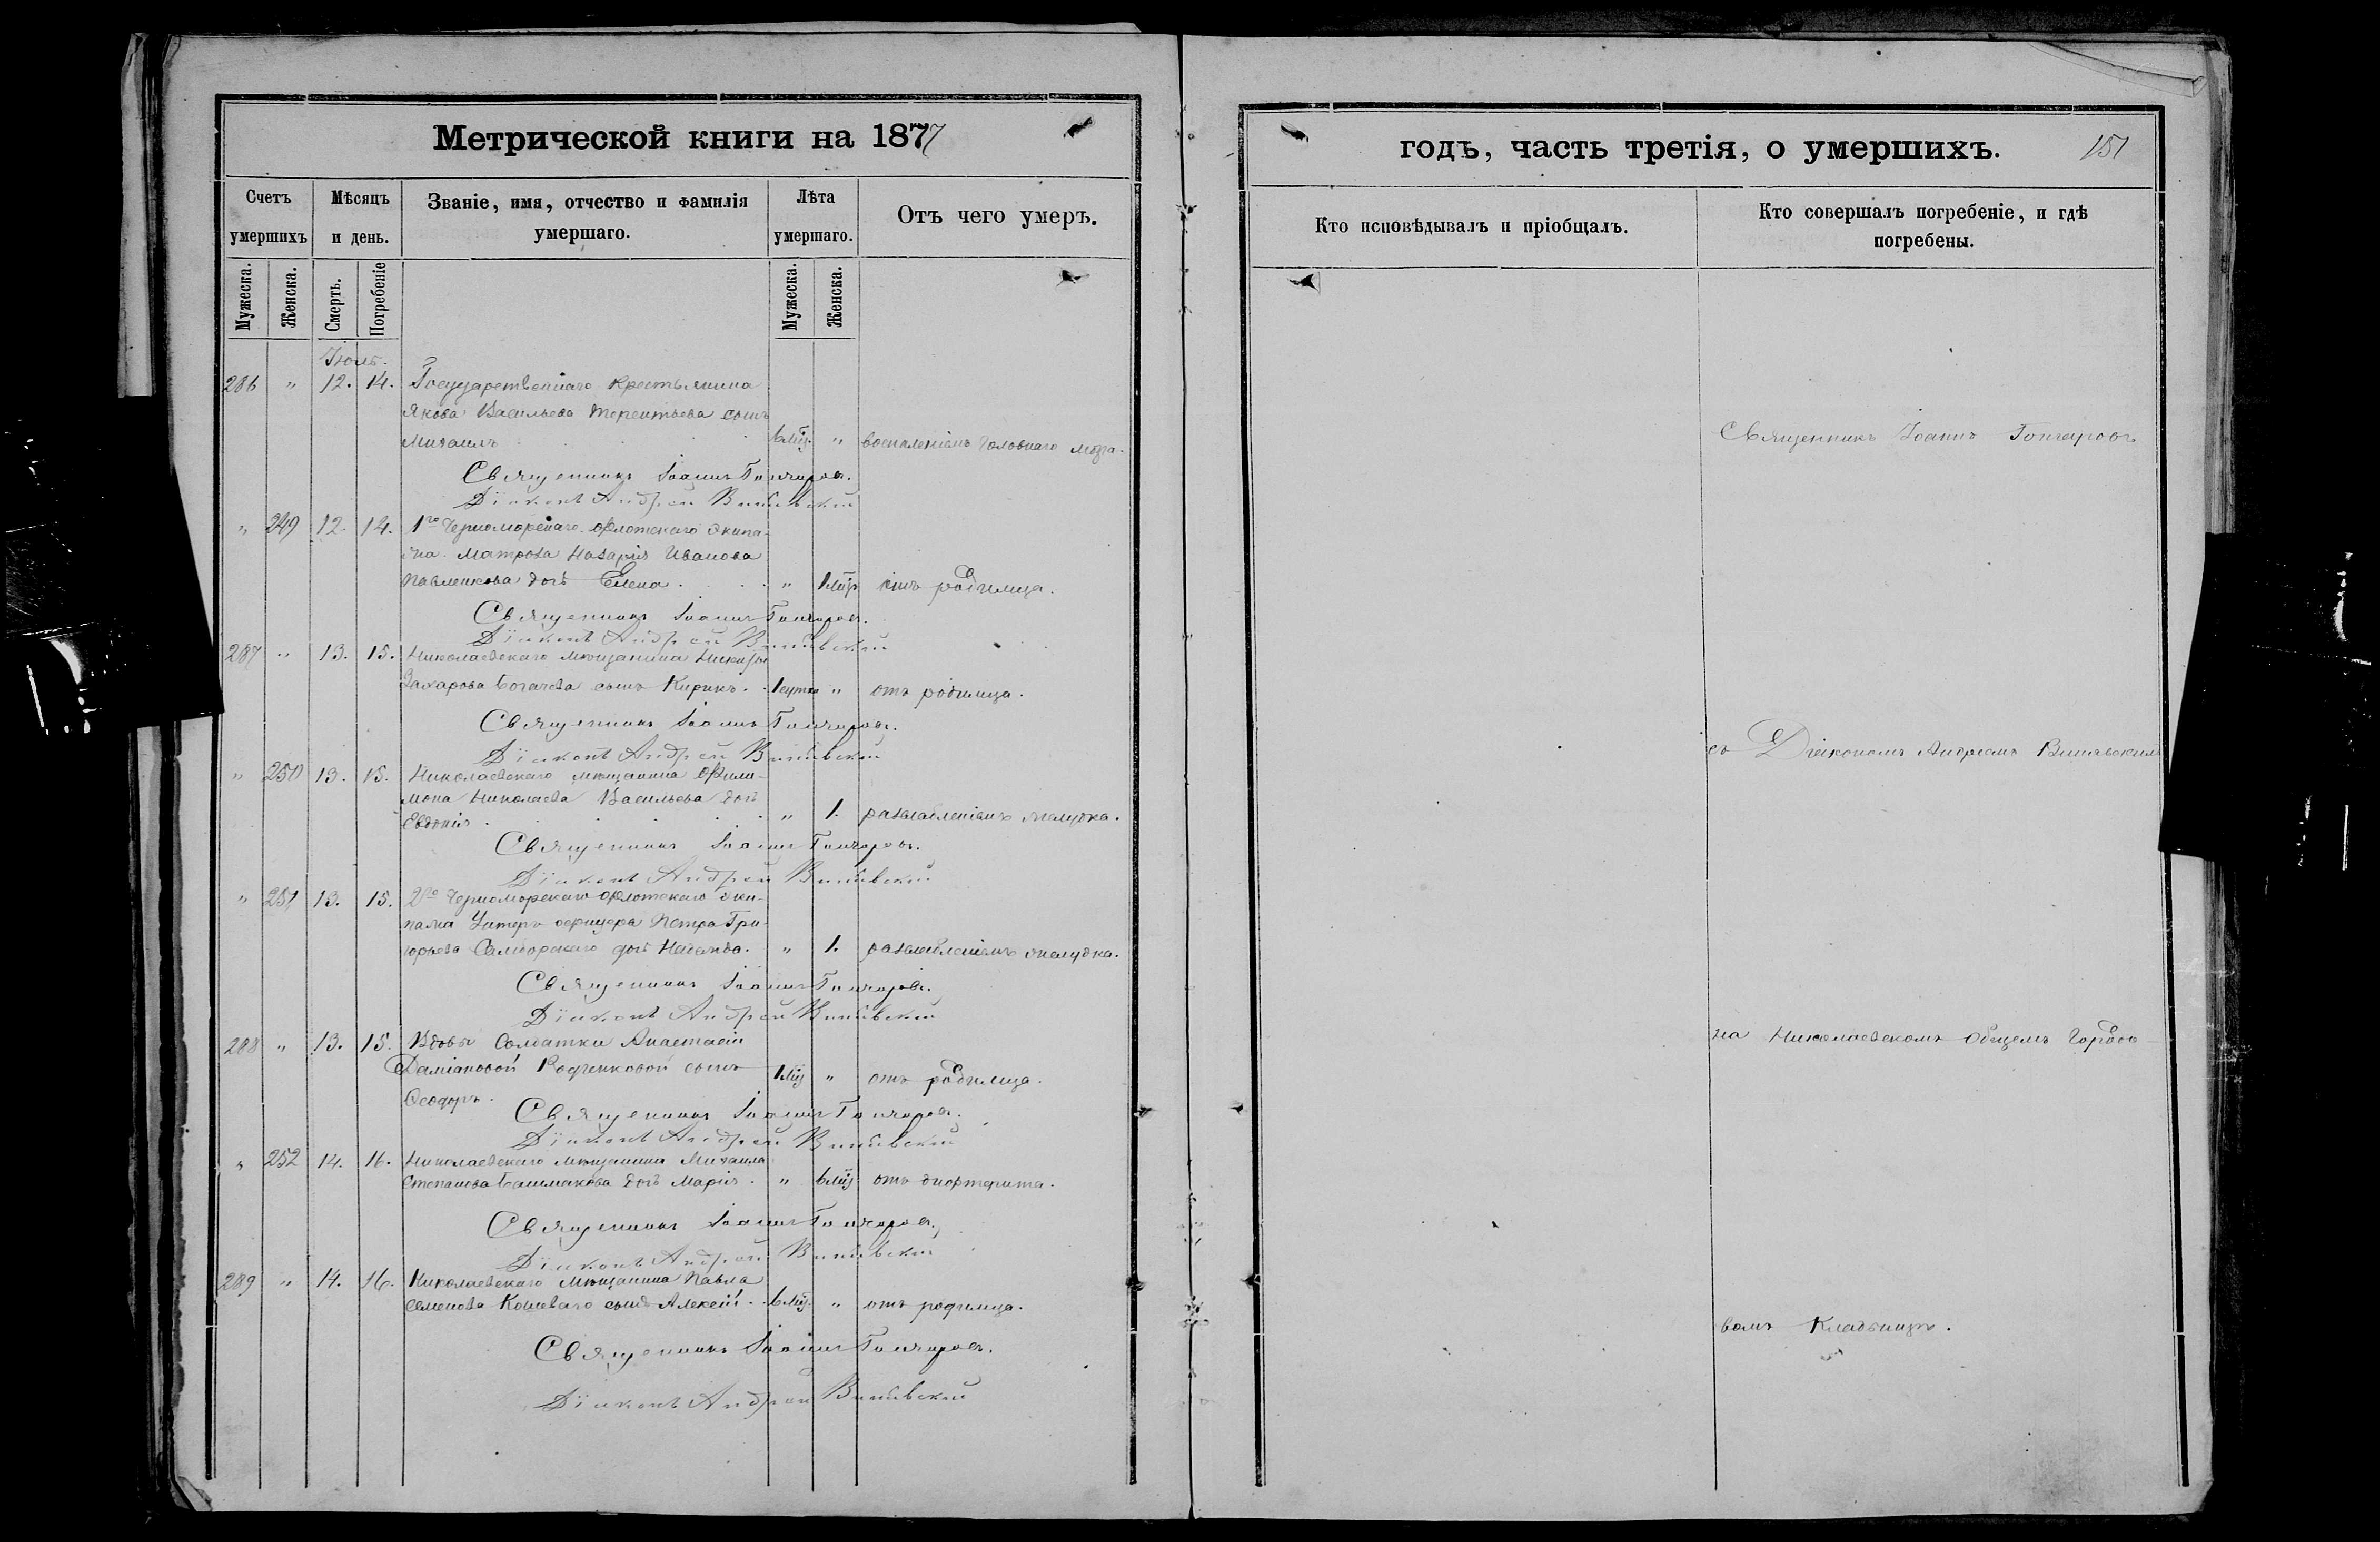 Метрической книги на 1877
Счетъ умершихъ
Мѣсяцъ и день.
Званіе, имя, отчество и фамилія умершаго.
Лѣта умершаго.
Отъ чего умеръ.
Мужеска. Женска. Смерть. Погребеніе Мужеска. Женска.
Іюль.
286 " 12. 14. Государственнаго крестьянина
Якова Васильева Терентьева сынъ
Михаилъ " воспаленіемъ головнаго мозга.
Священникъ Іоаннъ Гончаровъ.
Діаконъ Андрей
" 249 12. 14. 1го Черноморскаго флотскаго экипа-
жа матроса Назарія Иванова
Павленкова дочь Елена " отъ родимца.
Священникъ Іоаннъ Гончаровъ.
Діаконъ Андрей
287 " 13. 15. Николаевскаго мѣщанина
Захарова Богачева сынъ Кирикъ. " отъ родимца.
Священникъ Іоаннъ Гончаровъ.
Діаконъ Андрей
" 250 13. 15. Николаевскаго мѣщанина Фили-
мона Николаева Васильева дочь
Евдокія " 1. разслабленіемъ желудка.
Священникъ Іоаннъ Гончаровъ.
Діаконъ Андрей
" 251 13. 15. 2го Черноморскаго флотскаго эки-
пажа Унтеръ офицера Петра Гри-
горьева дочь Надежда. " 1. разслабленіемъ желудка.
Священникъ Іоаннъ Гончаровъ.
Діаконъ Андрей
288 " 13. 15. Вдовы солдатки Анастасіи
Даміановой сынъ " отъ родимца.
Ѳеодоръ.
Священникъ Іоаннъ Гончаровъ.
Діаконъ Андрей
" 252 14. 16. Николаевскаго мѣщанина Михаила
Степанова Башмакова дочь Марія. " отъ дифтерита.
Священникъ Іоаннъ Гончаровъ.
Діаконъ Андрей
289 " 14. 16. Николаевскаго мѣщанина Павла
Семенова Кошеваго сынъ Алексій. " отъ родимца.
Священникъ Іоаннъ Гончаровъ.
Діаконъ Андрей
годъ, часть третія, о умершихъ. 151
Кто исповѣдывалъ и пріобщалъ.
Кто совершалъ погребеніе, и гдѣ погребены.
Священникъ Іоаннъ Гончаровъ
съ Діакономъ Андреемъ
на Николаевскомъ общемъ городо-
вомъ кладбищѣ.